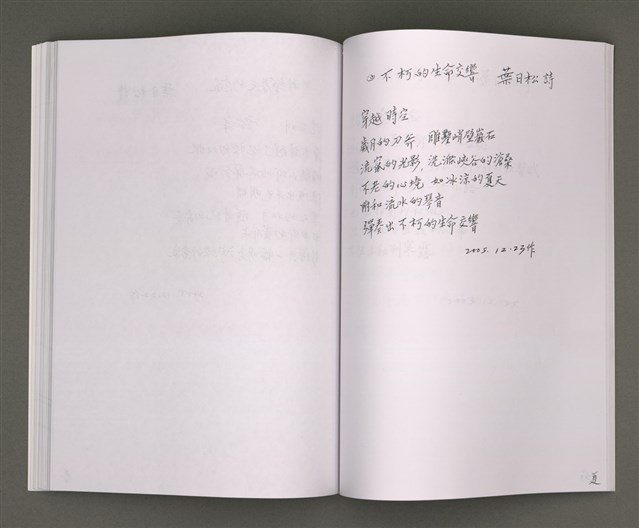 不朽的生命交響 葉日松詩
穿越時空
歲月的刀斧 雕鑿峭壁巖石
流瀉的光影,洗滌峽谷的滄桑
不老的心境 如冰涼的夏天
用和流水的琴音
彈奏出不朽的生命交響
2005.12.23作
夏